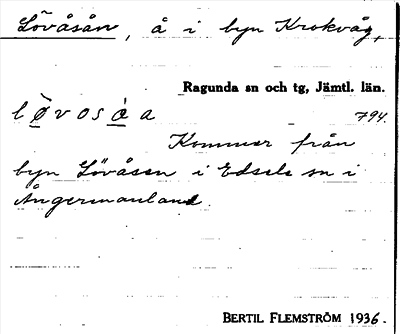 Lövåsån, å i byn Krokvåg,
Ragunda sn och tg, Jämtl. län.
lø̀vosà̱a 794.
Kommer från
byn Lövåsen i Edsele sn i
Ångermanland.
BERTIL FLEMSTRÖM 1936.